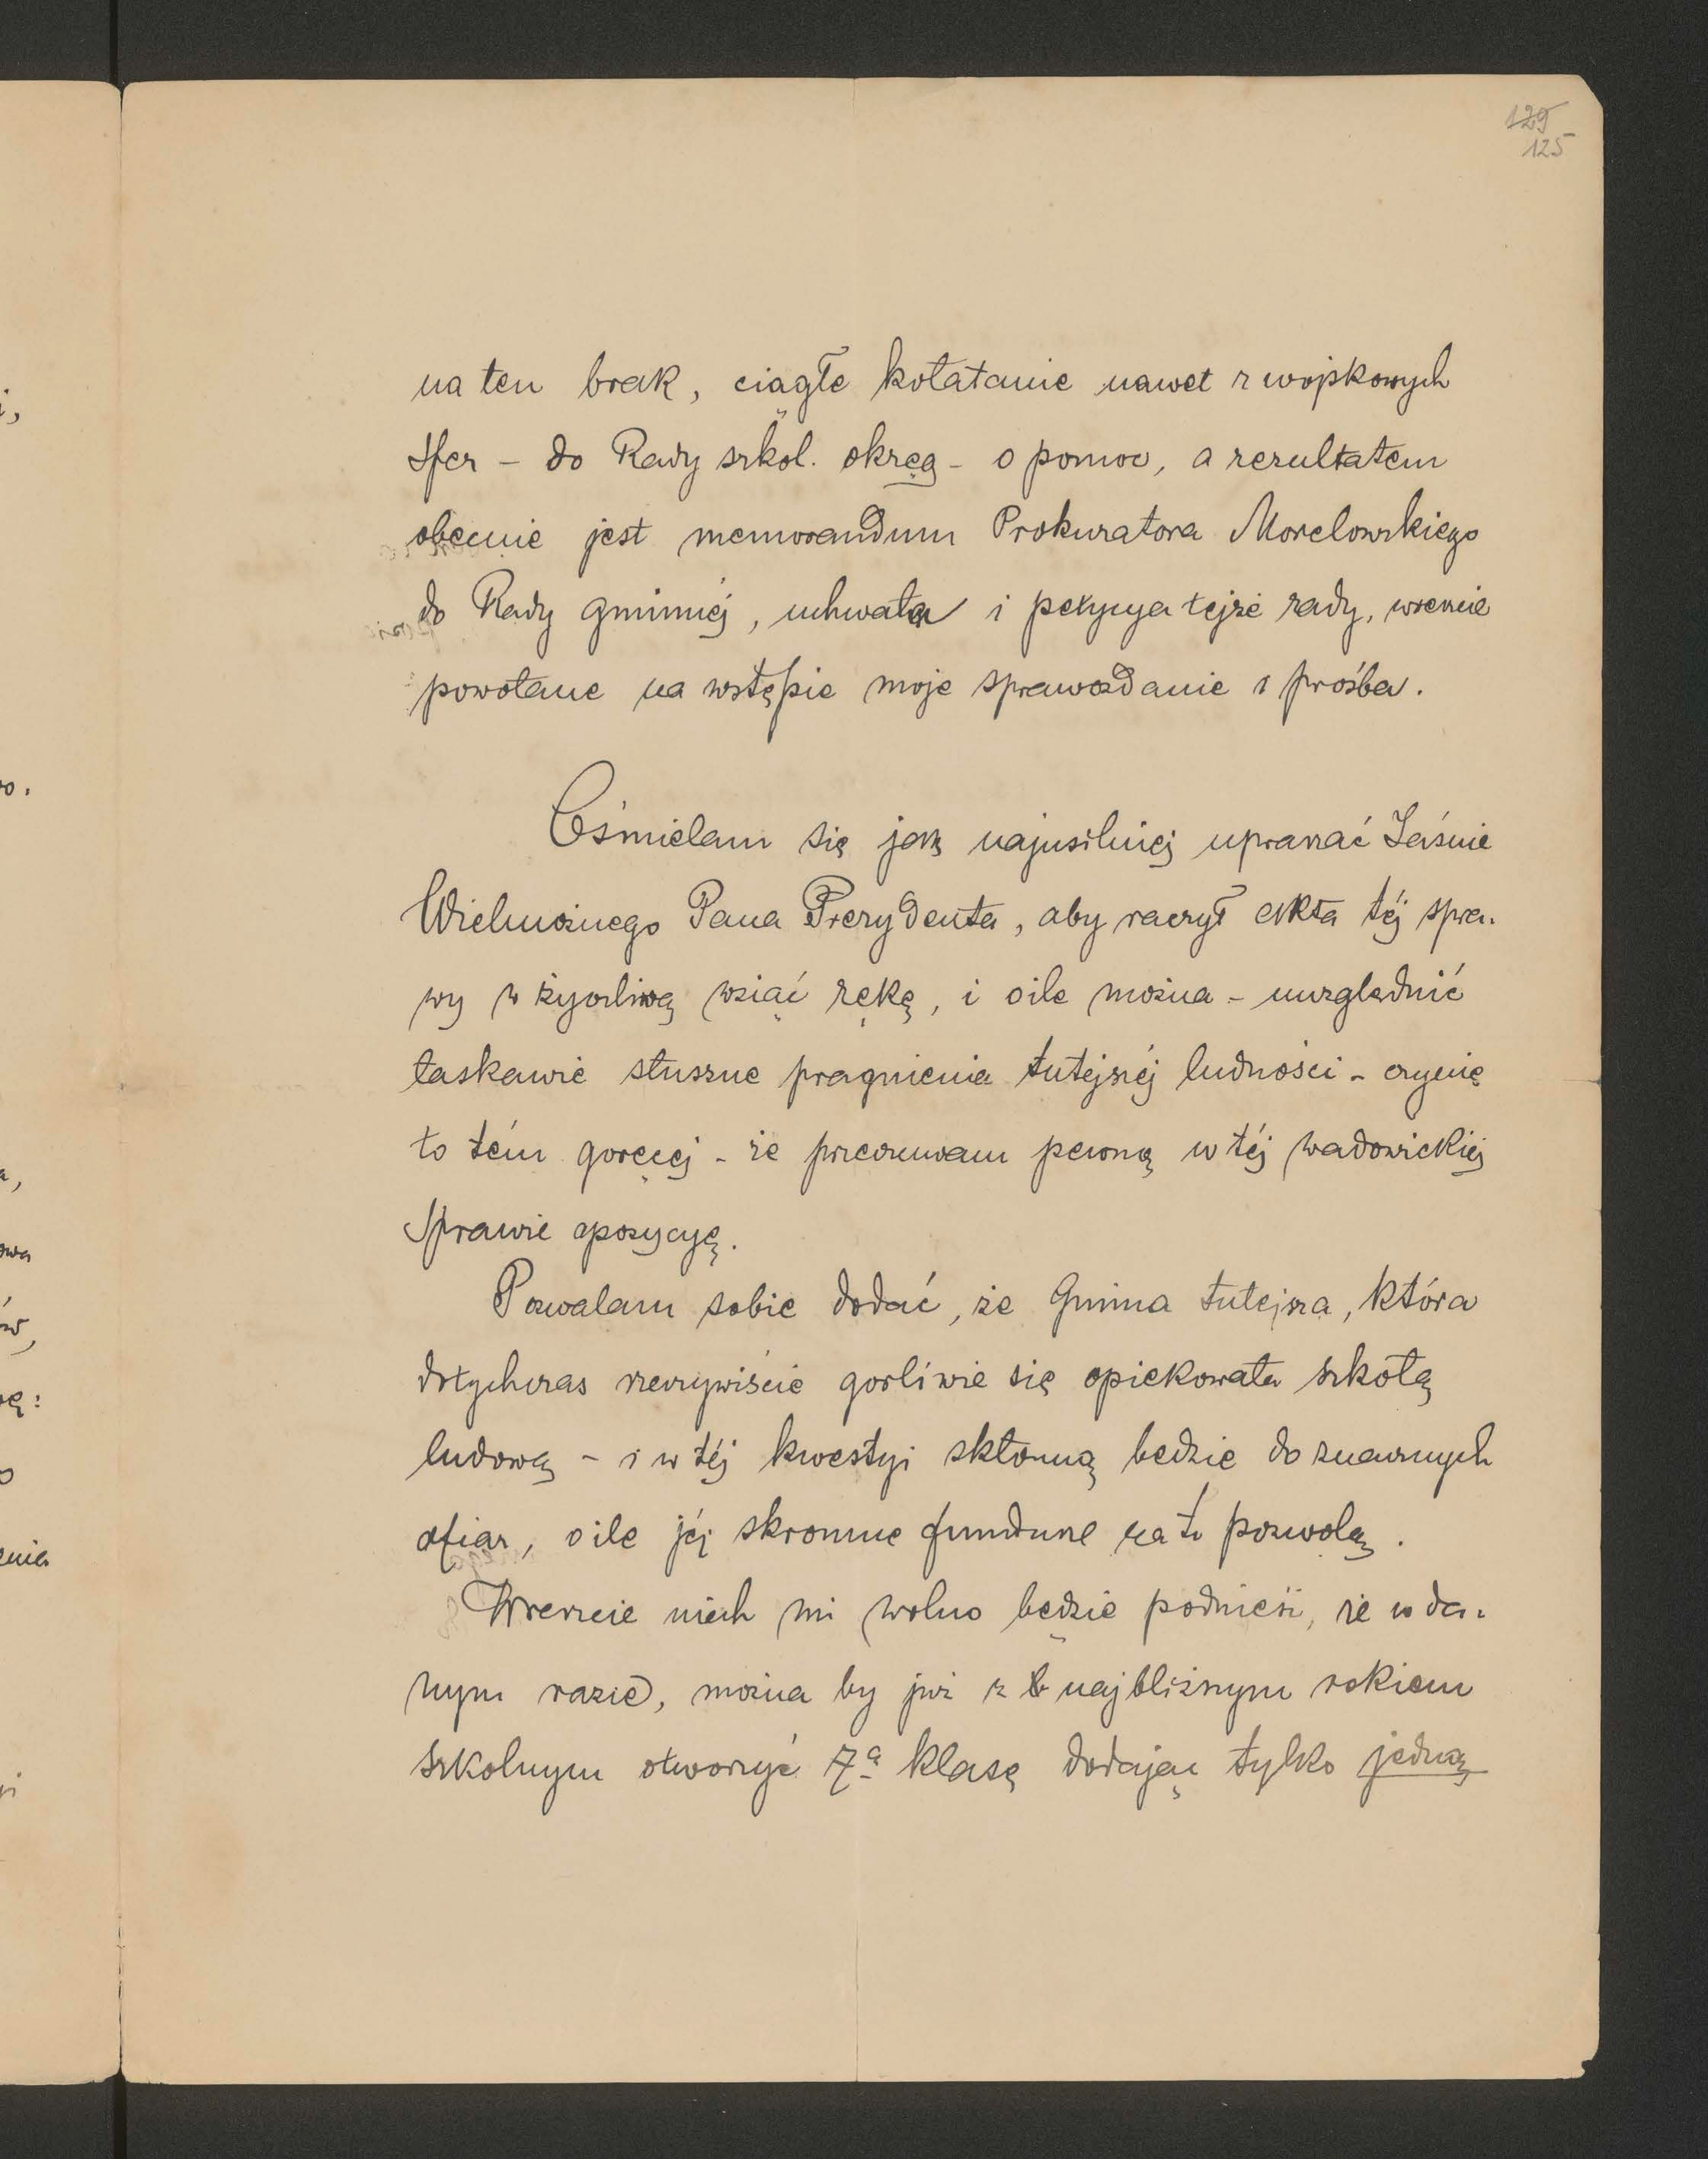 129
125
na ten brak, ciągłe kołatanie nawet z wojskowych
sfer – do Rady szkol. okręg – o pomoc, a rezultatem
obecnie jest memorandum Prokuratora Morelowskiego
do Rady gminnéj, uchwała i petycya tejże rady, wreszcie
powołane na wstępie moje sprawozdanie i prośba.
Ośmielam się jak najusilniej upraszać Jaśnie
Wielmożnego Pana Prezydenta, aby raczył akta téj spra-
wy w życzliwą wziąć rękę, i o ile można – uwzględnić
łaskawie słuszne pragnienia tutejszéj ludności – czynię
to tém goręcej – że przeczuwam pewną w téj wadowickiéj
sprawie opozycyę.
Pozwalam sobie dodać, że Gmina tutejsza, która
dotychczas rzeczywiście gorliwie się opiekowała szkołą
ludową – i w téj kwestyi skłonną będzie do znacznych
ofiar, o ile jéj skromne fundusze na to pozwolą.
Wreszcie niech mi wolno będzie podnieść, że w da-
nym razie, można by już z najbliższym rokiem
szkolnym otworzyć 7ą klasę dodając tylko jedną